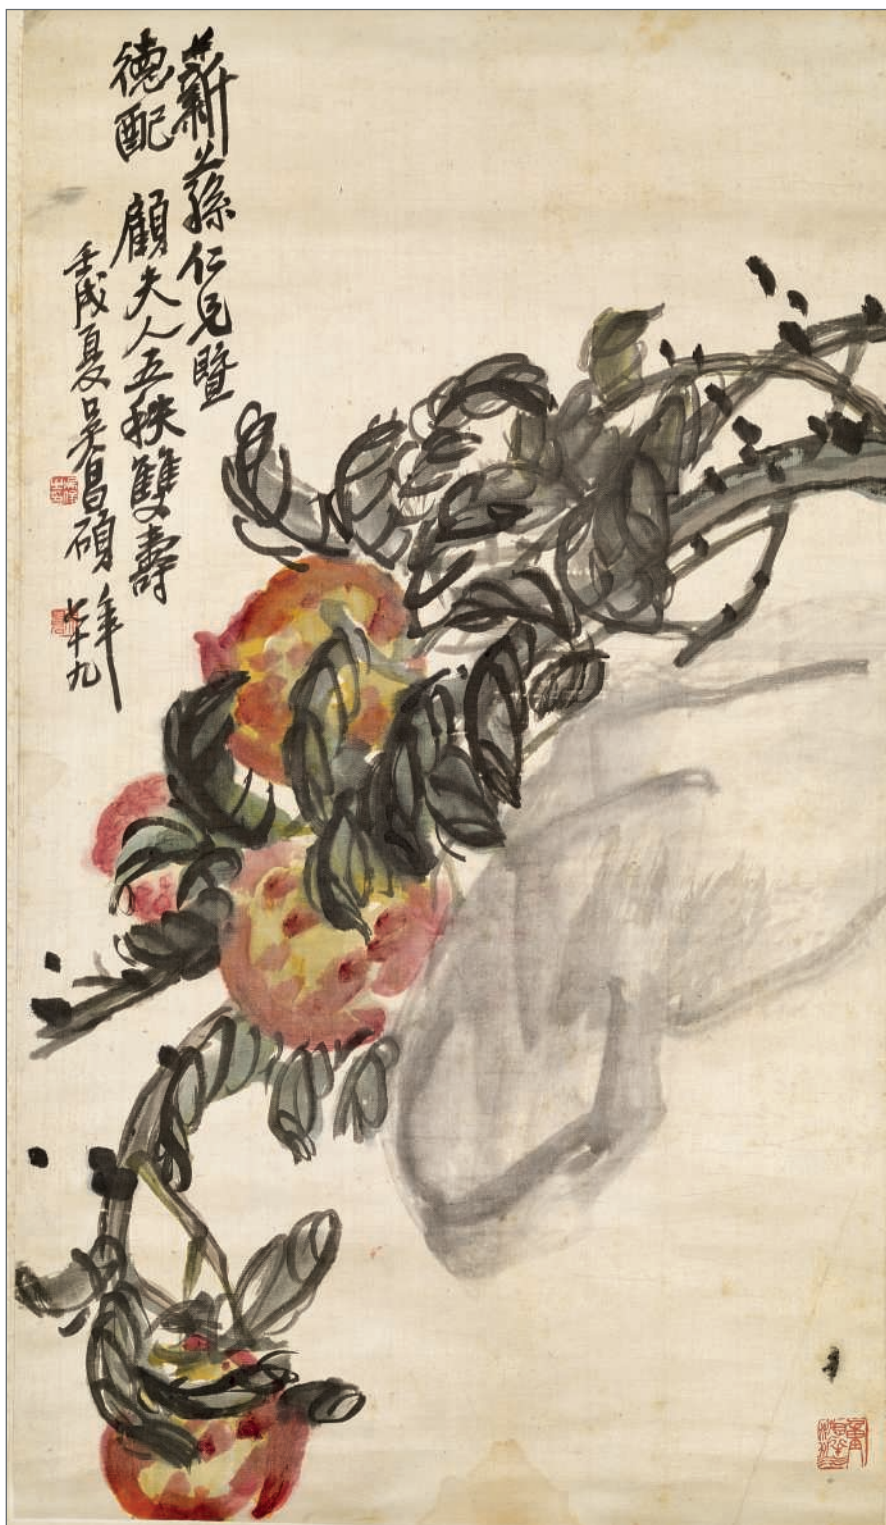 蘄孫仁兄暨
德配 顧夫人五秩雙壽
壬戌夏吳昌碩年
七十九